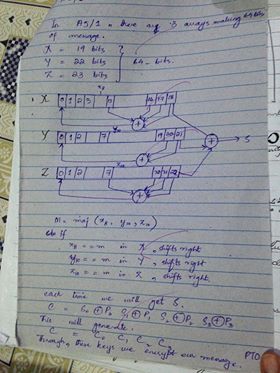 In A5/1, there are 3 arrays making 64 bits
of message.
X = 19 bits
Y = 22 bits 64-bits.
Z = 23 bits
X 0 1 2 3 16 17 18
Y 0 1 2 7 19 20 21 S
Z 0 1 2 7 20 21 22
m = maj (x8, y10, z10)
if
x8 == m in X, shifts right
y10 == m in Y, shifts right
z10 == m in Z, shifts right.
each time we will get S.
C = S0 ⊕ P1 S2 ⊕ P2 S3 ⊕ P3
This will generate.
C = C0 C1 C2 C3
Through these keys we encrypt our message.
PTO